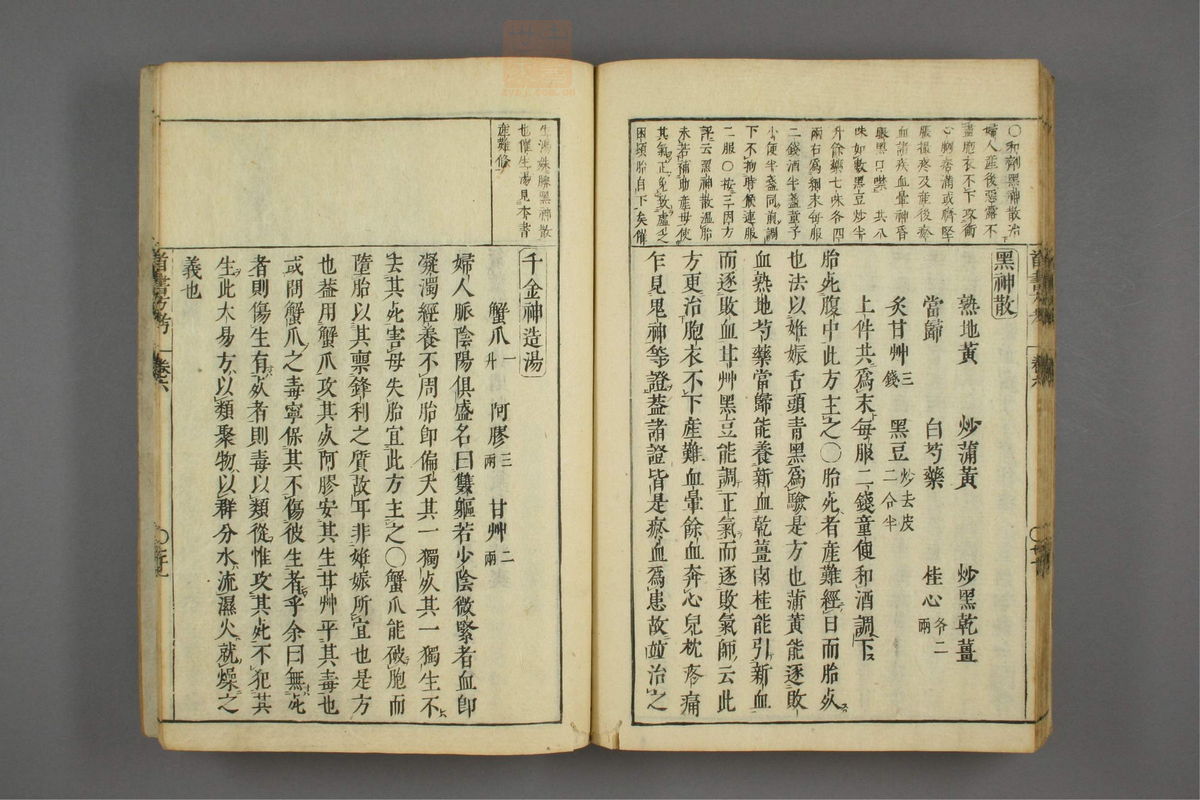 ○和劑黑神散治
婦人産後惡露不
盡胞衣不下攻衝
心胸痞滿或臍堅
脹撮疼及産後瘀
血諸疾血暈神昏
眼黑口噤 共八
味如數黑豆炒半
升餘藥七味各四
兩右爲細末每服
二錢酒半盞童子
小便半盞同煎調
下不拘時候連服
二服○按三因方
評云黑神散溫胎
未若補助産母使
其氣正免致虛乏
困頓胎自下矣催
黑神散
熟地黃 炒蒲黃 炒黑乾薑
當歸 白芍藥 桂心各二兩
炙甘艸三錢 黑豆炒去皮二合半
上件共爲末每服二錢童便和酒調下
胎死腹中此方主之○胎死者産難經日而胎死
也法以姙娠舌頭青黑爲驗是方也蒲黃能逐敗
血熟地芍藥當歸能養新血乾薑肉桂能引新血
而逐敗血甘艸黑豆能調正氣而逐敗氣師云此
方更治胞衣不下産難血暈餘血奔心兒枕疼痛
乍見鬼神等證葢諸證皆是瘀血爲患故竝治之
首書 卷六
生湯殊勝黑神散
也催生湯見本書
産難條
千金神造湯
蟹爪一升 阿膠三兩 甘艸二兩
婦人脈陰陽俱盛名曰雙軀若少陰微緊者血卽
凝濁經養不周胎卽偏夭其一獨死其一獨生不
去其死害母失胎宜此方主之○蟹爪能破胞而
墮胎以其禀鋒利之質故耳非姙娠所宜也是方
也葢用蟹爪攻其死阿膠安其生甘艸平其毒也
或問蟹爪之毒寧保其不傷彼生者乎余曰無死
者則傷生有死者則毒以類從惟攻其死不犯其
生此大易方以類聚物以群分水流濕火就燥之
義也
卷六